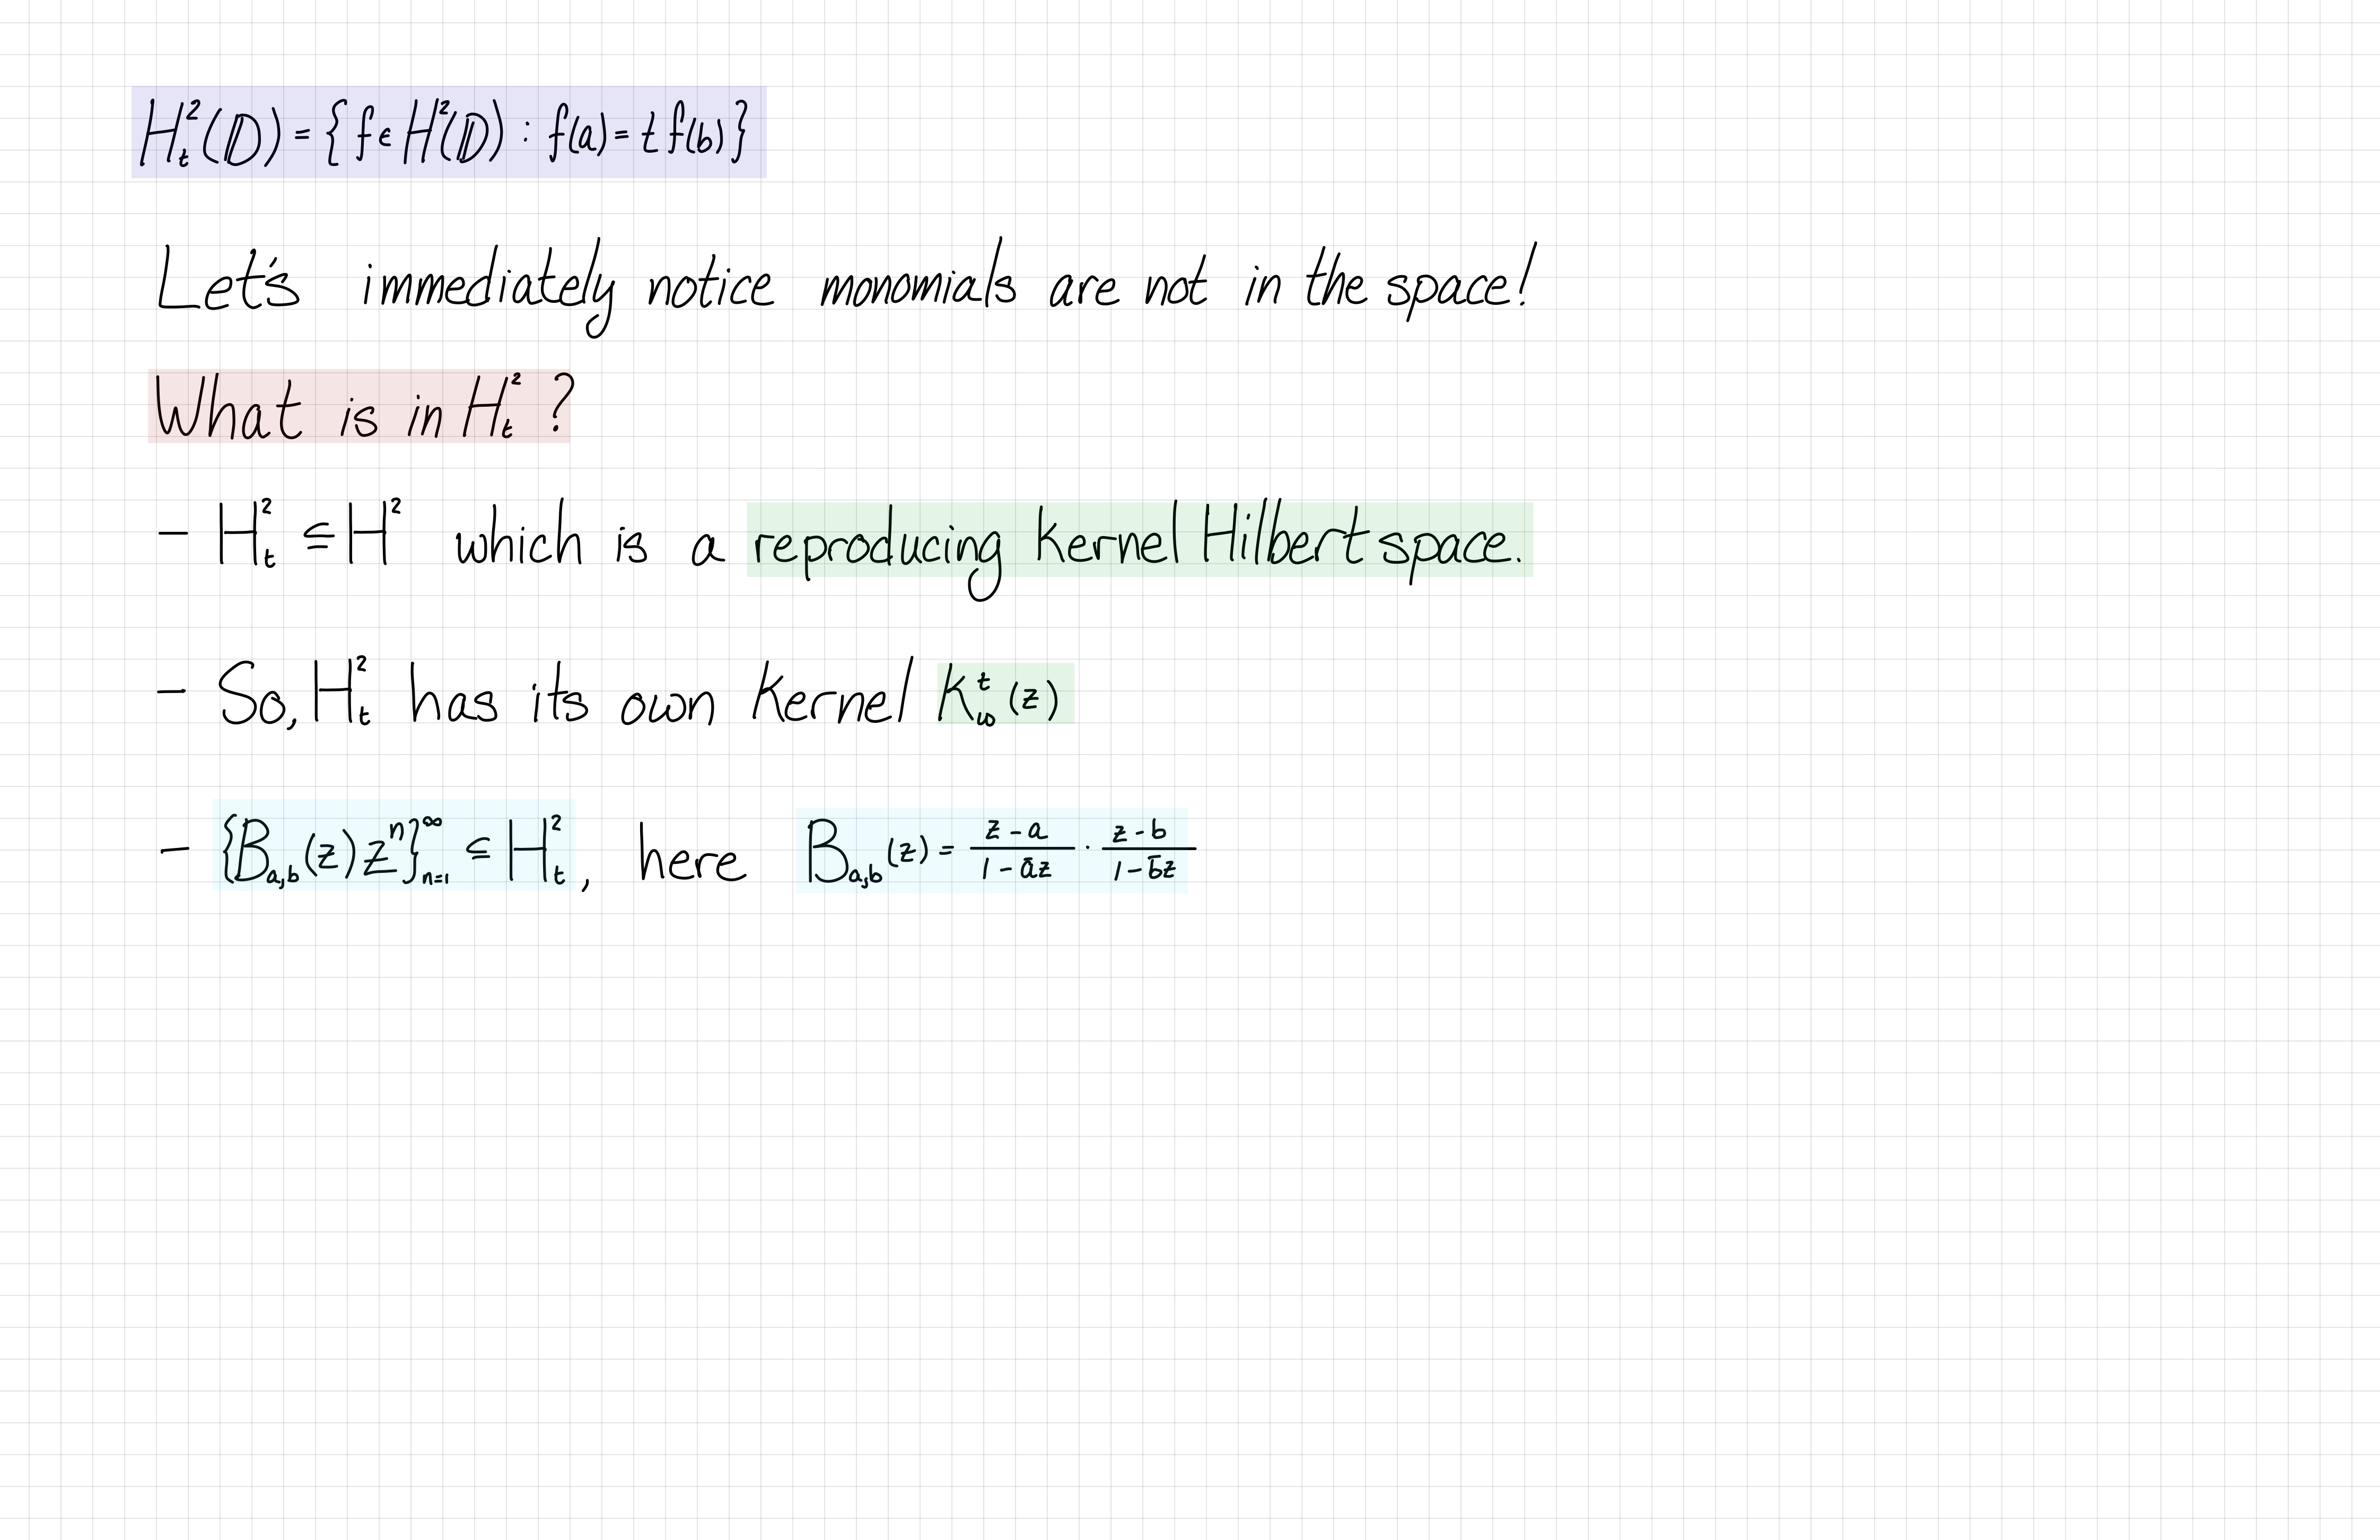 H²ₜ(𝔻) = { f ∈ H²(𝔻) : f(a) = t f(b) }
Let's immediately notice monomials are not in the space!
What is in H²ₜ ?
– H²ₜ ⊆ H² which is a reproducing kernel Hilbert space.
– So, H²ₜ has its own kernel K_w^t (z)
– {B_{a,b}(z) zⁿ}_{n=1}^∞ ⊆ H²ₜ, here B_{a,b}(z) = \frac{z-a}{1-\bar{a}z} · \frac{z-b}{1-\bar{b}z}